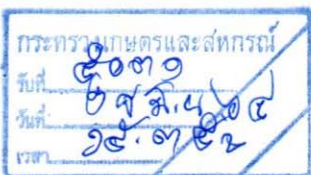 กระทรวงเกษตรและสหกรณ์
รับที่ ๕๐๓๑
วันที่ ๑ มิ.ย. ๖๔
เวลา ๑๕.๓๕ น